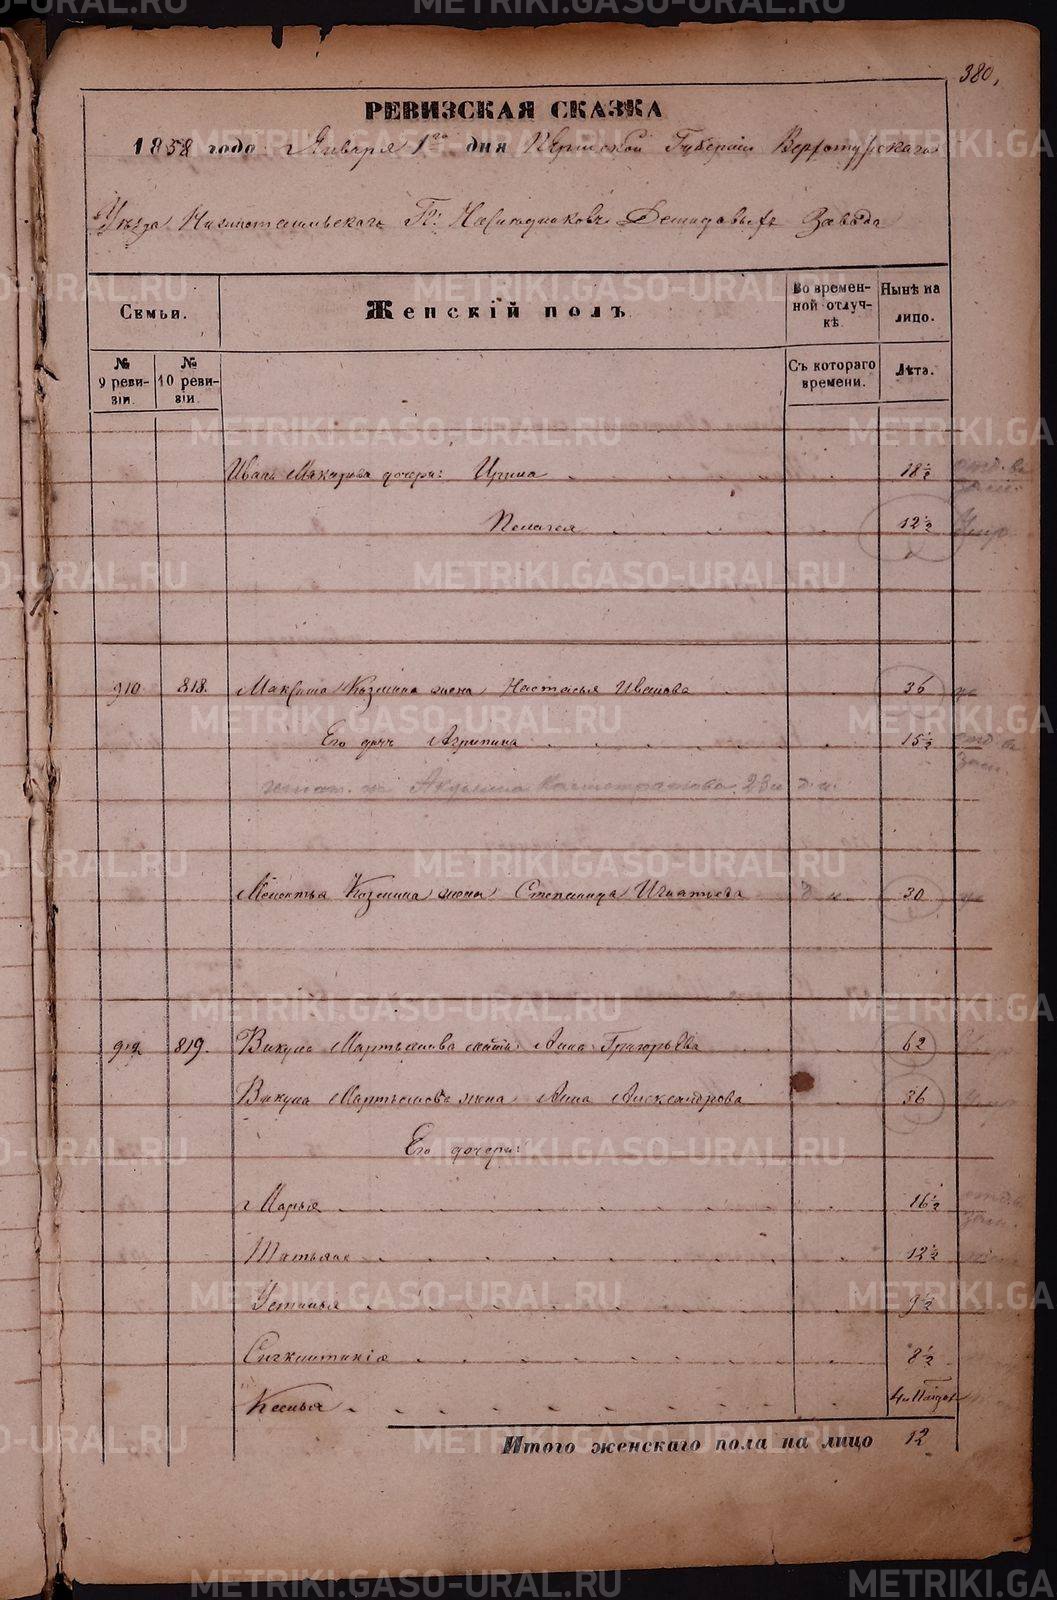 380,
РЕВИЗСКАЯ СКАЗКА
1858 года Января 1го дня Пермской Губерніи Верхотурскаго
Уѣзда Нижнотагильскаго Гг: Наслѣдниковъ Демидовыхъ Завода
Семьи.
Женскій полъ
Во времен-
ной отлуч-
кѣ.
Нынѣ на
лицо.
№
9 реви-
зіи.
№
10 реви-
зіи
Съ котораго
времени.
Лѣта.
Ивана Макарова дочери: Ирина 18½
Пелагея 12½ Умер
910 818. Максима Козмина жена Настасья Иванова 36
Его дочь Агрипина 15½
Акулина 23
Козмина жена Степанида Игнатьева 30
912 819. Викула Мартемьянова мать Анна Григорьева 62
Викула Мартемьянова жена Анна Александрова 36
Его дочери:
Марья 16½
Татьяна 12½
Устинья 9½
8½
Ксенья
Итого женскаго пола на лицо 12
METRIKI.GASO-URAL.RU